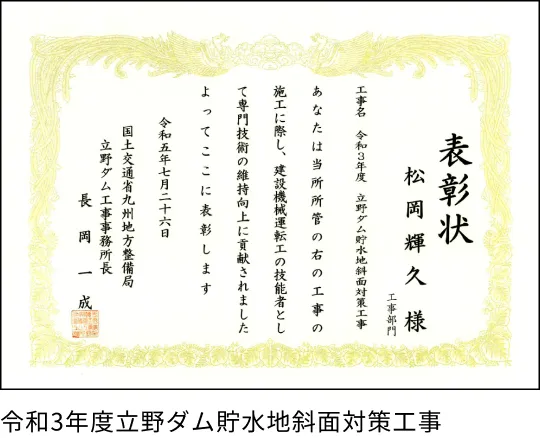 表彰状
工事部門
松岡輝久様
工事名 令和3年度 立野ダム貯水池斜面対策工事
あなたは当所所管の右の工事の
施工に際し、建設機械運転工の技能者とし
て専門技術の維持向上に貢献されました
よってここに表彰します
令和五年七月二十六日
国土交通省九州地方整備局
立野ダム工事事務所長
長岡一成
令和3年度立野ダム貯水池斜面対策工事